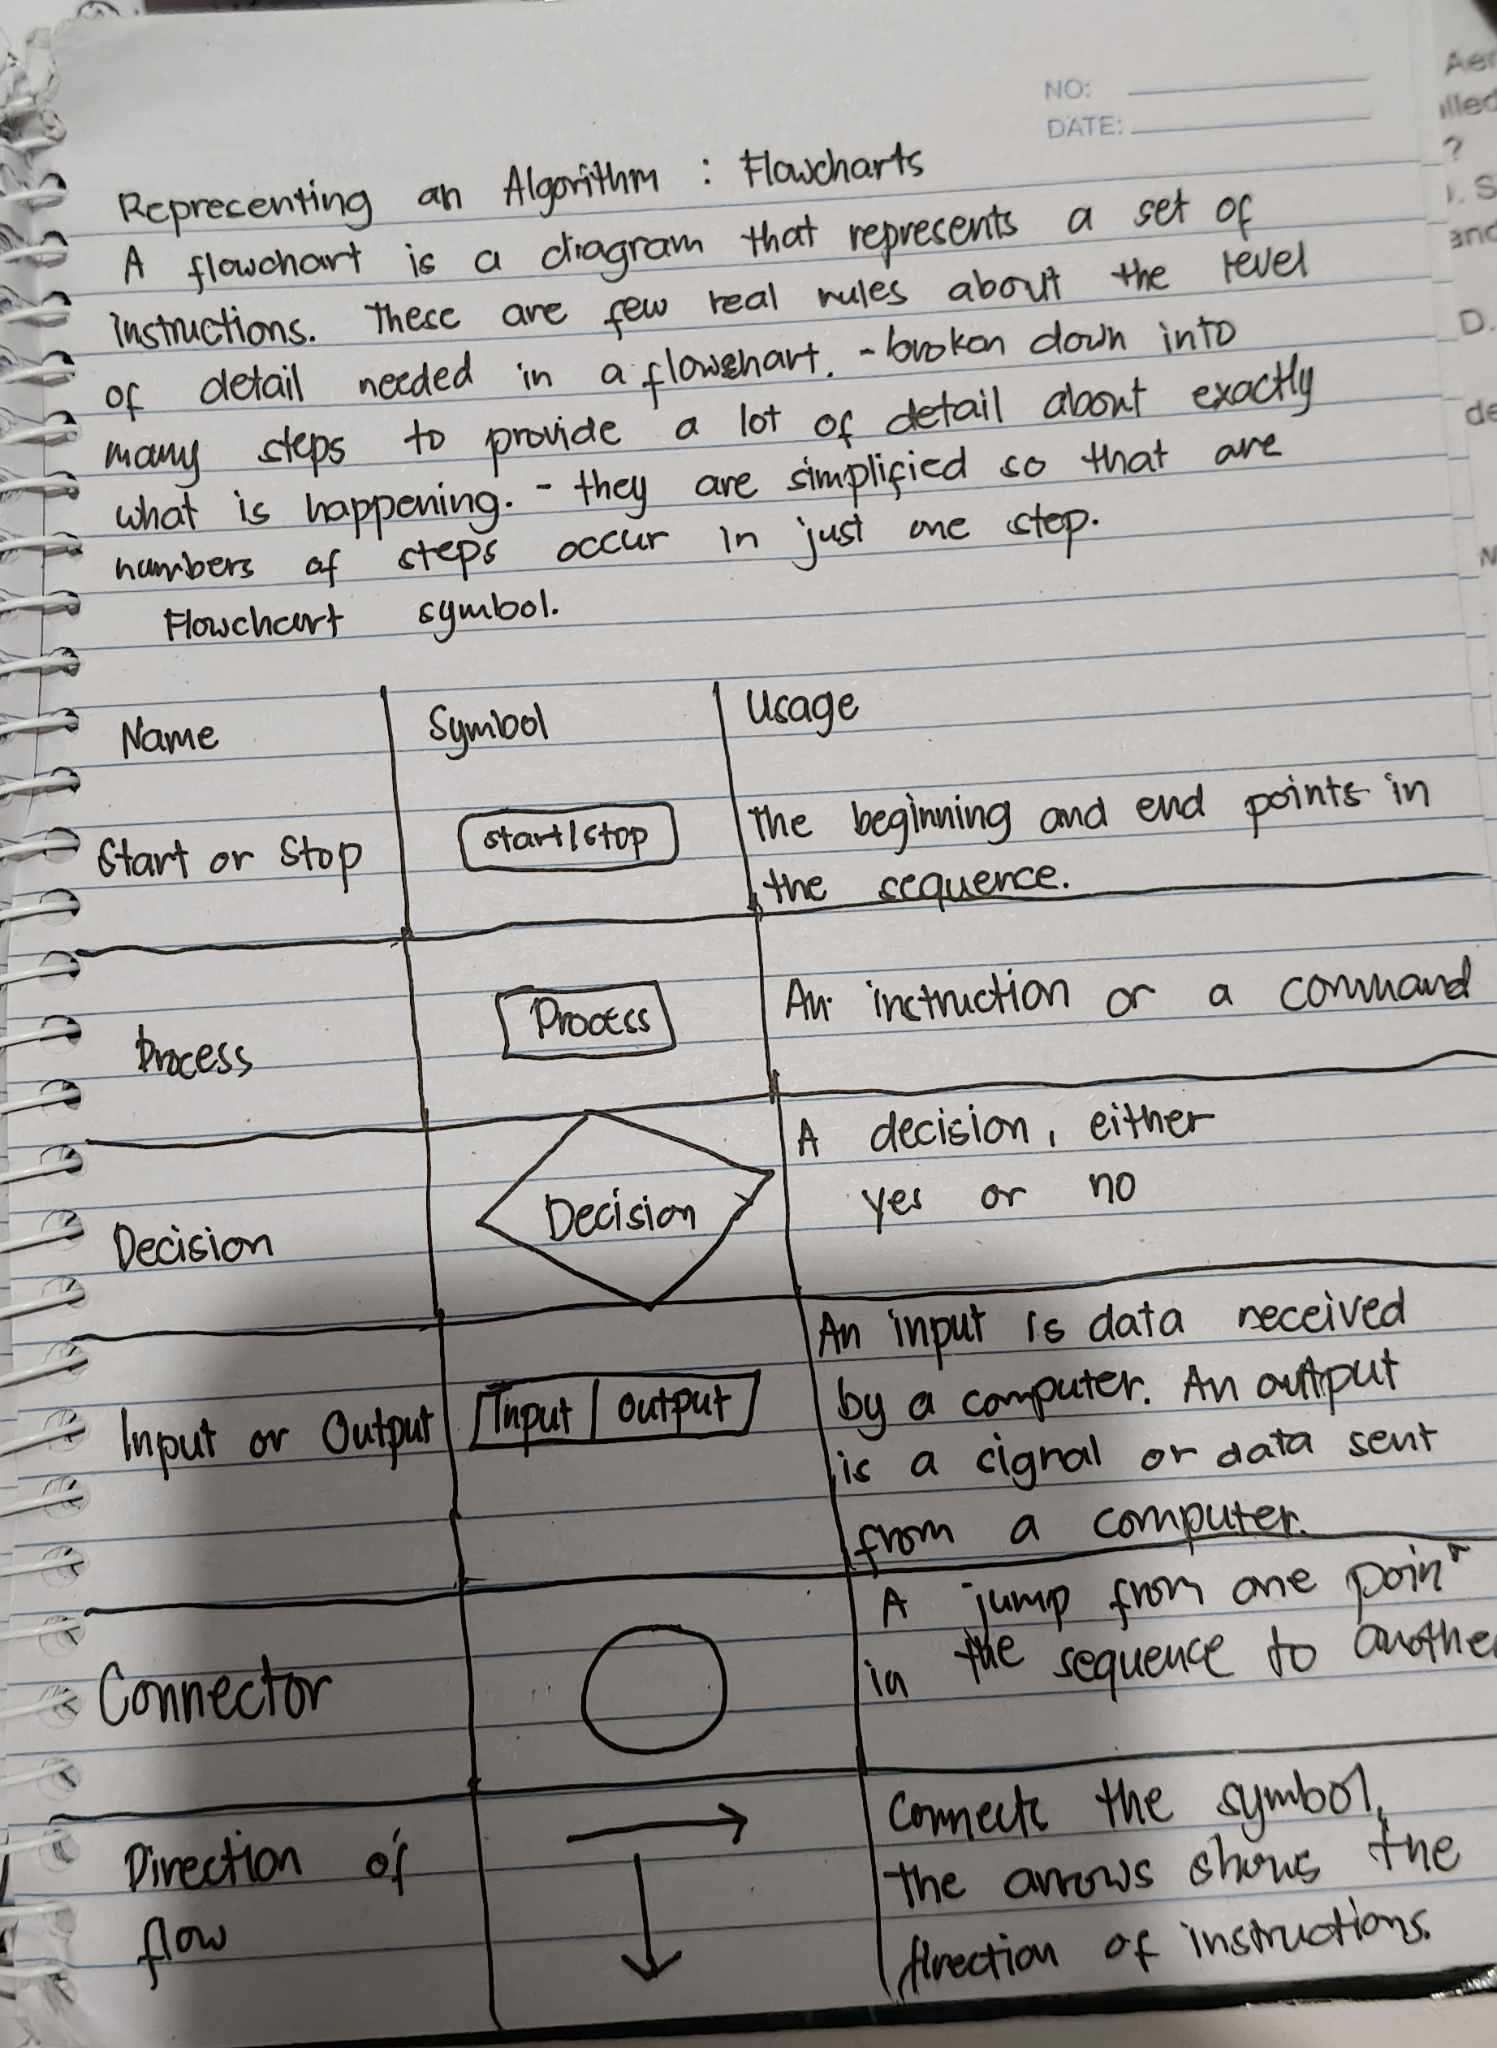 NO:
DATE:
Reprecenting an Algorithm : Flowcharts
A flowchart is a diagram that represents a set of
instructions. These are few real rules about the level
of detail needed in a flowchart. - broken down into
many steps to provide a lot of detail about exactly
what is happening. - they are simplified so that are
numbers of steps occur in just one step.
Flowchart symbol.
Name Symbol Usage
Start or Stop start/stop The beginning and end points in
the sequence.
Process Process An instruction or a command
Decision Decision A decision, either
yes or no
Input or Output Input / output An input is data received
by a computer. An output
is a signal or data sent
from a computer.
Connector A jump from one point
in the sequence to another
Direction of flow Connects the symbol,
the arrows shows the
direction of instructions.
Aer
illed
?
and
D.
de